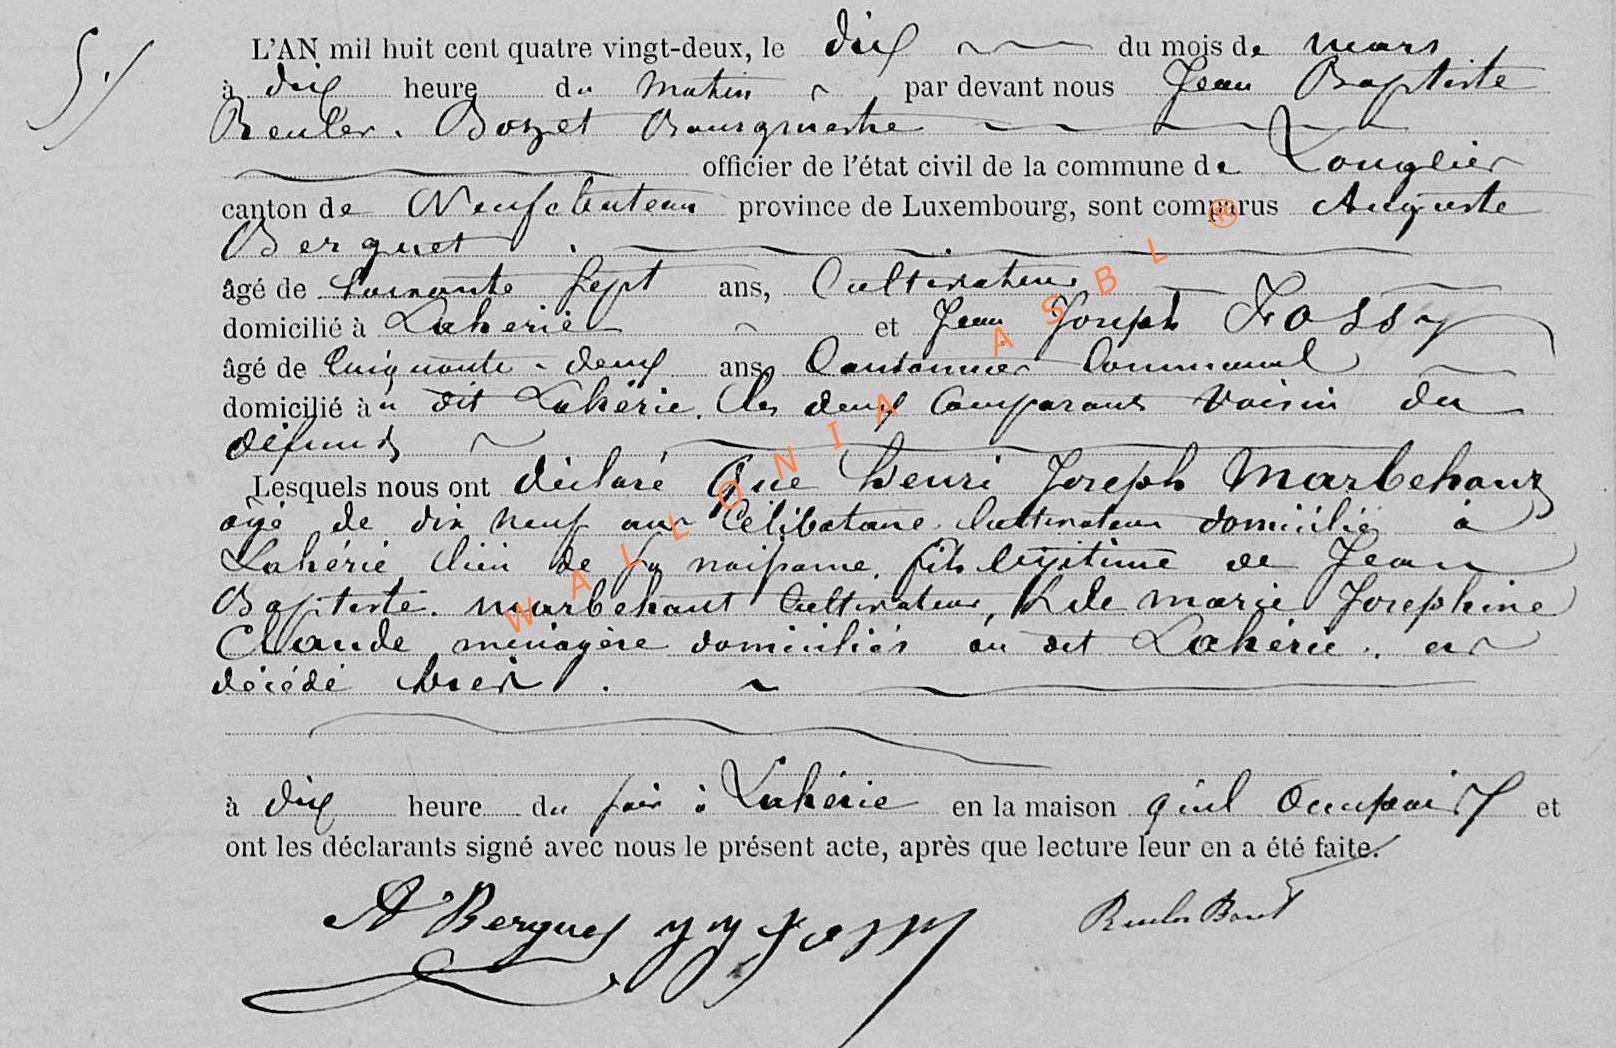 5./
L'AN mil huit cent quatre vingt-deux, le dix du mois de mars
à dix heure du matin par devant nous Jean Baptiste
Reuler. Bozet Bourgmestre
officier de l'état civil de la commune de Longlier
canton de Neufchateau province de Luxembourg, sont comparus Auguste
Berguet
âgé de soixante sept ans, Cultivateur
domicilié à Lahérie et Jean Joseph Fossy
âgé de Cinquante-deux ans Cantonnier Communal
domicilié à u dit Lahérie. les deux Comparants Voisin du
défunt
Lesquels nous ont déclaré Que henri Joseph Marbehant
agé de dix neuf ans Célibataire Cultivateur domicilié à
Lahérie lieu de sa naissance, fils légitime de Jean
Baptiste. Marbehant Cultivateur, & de marie Josephine
Claude ménagère domiciliés au dit Lahérie. est
décédé hier.
à dix heure du soir à Lahérie en la maison quil Occupait et
ont les déclarants signé avec nous le présent acte, après que lecture leur en a été faite.
A Berguet J J Fossy Reuler Bozet
WALLONIA ASBL ®